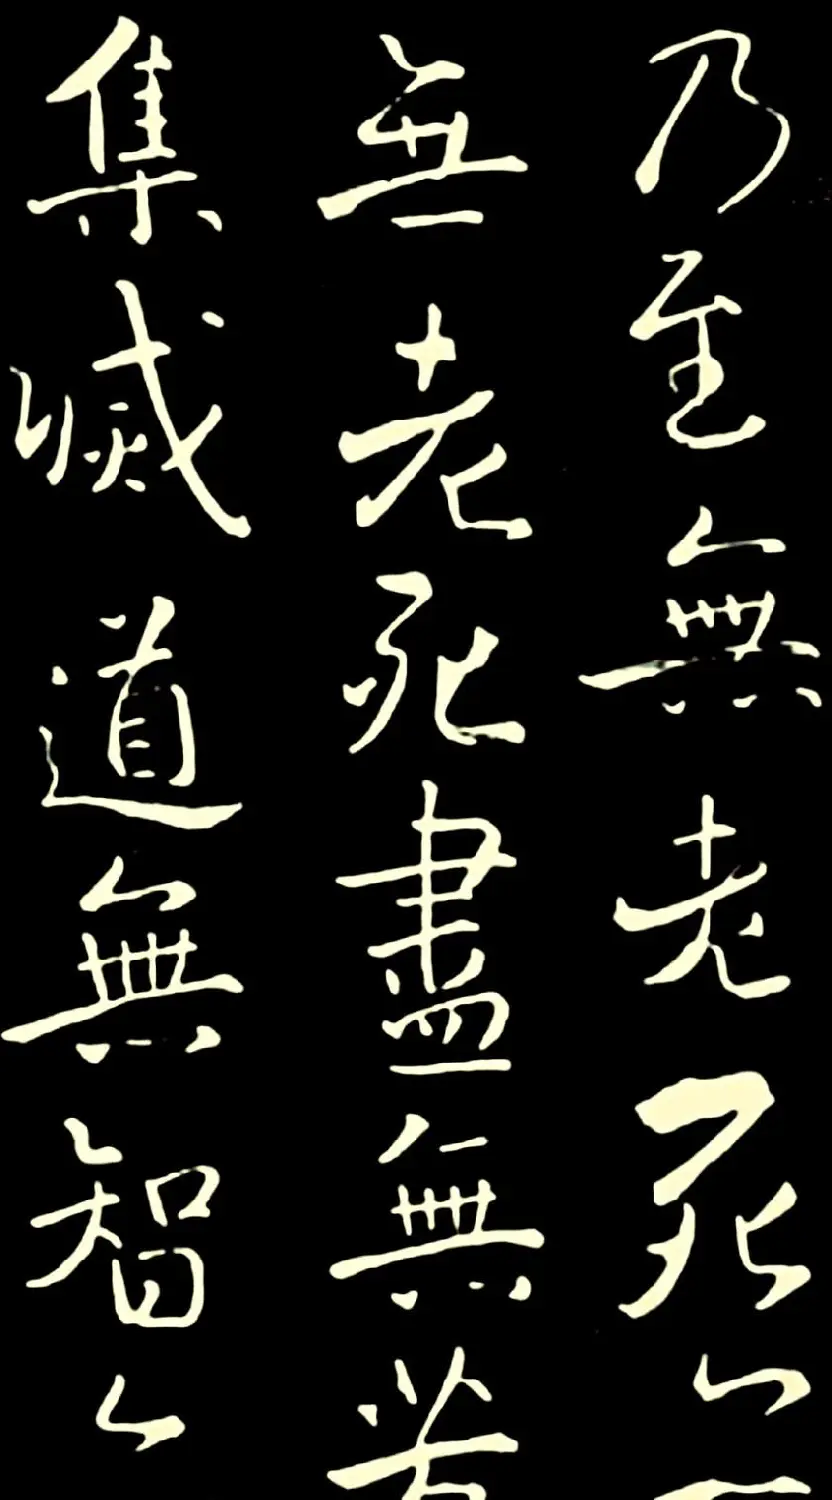 乃至無老死
無老死盡無苦
集滅道無智